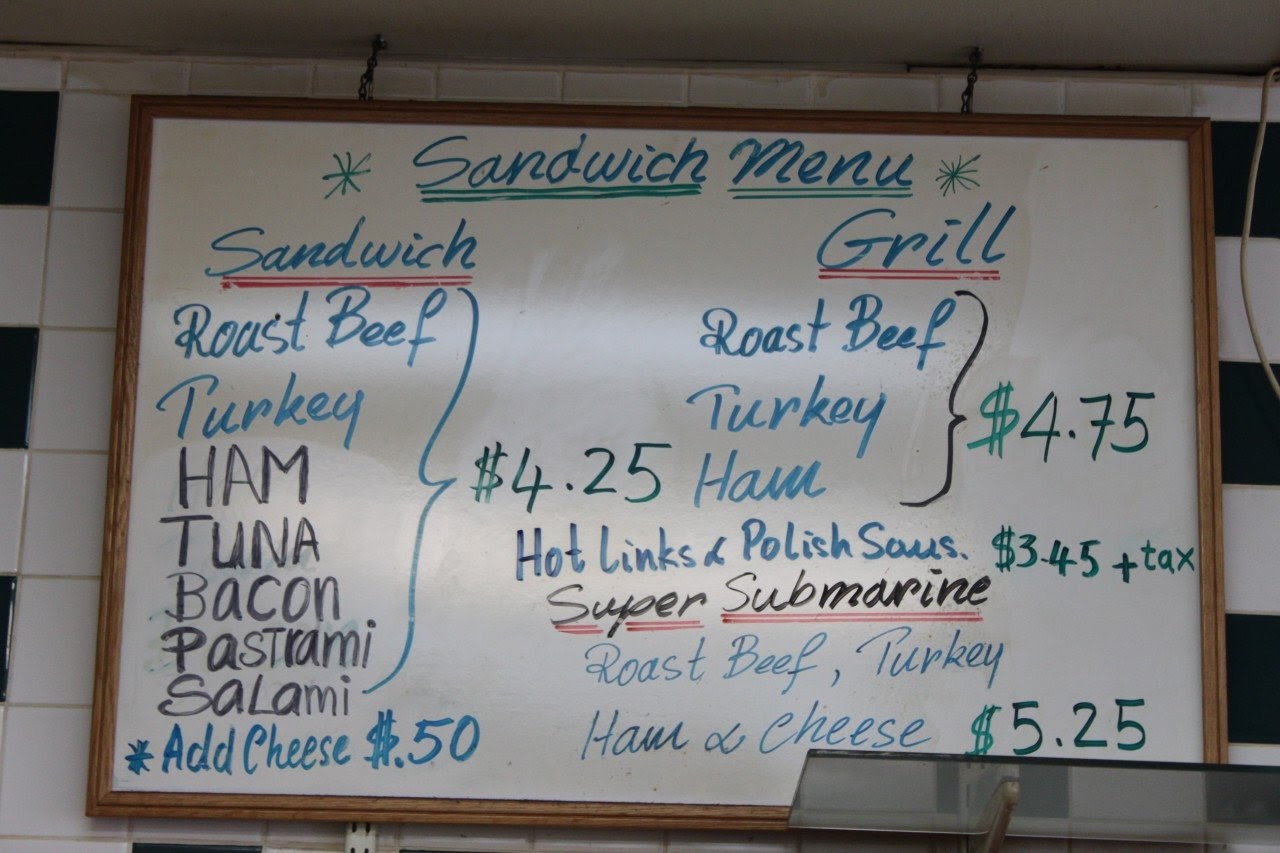 * Sandwich Menu *
Sandwich
Roast Beef
Turkey
HAM
TUNA
BACON
PASTRAMi
SALAMi
$4.25
* Add Cheese $.50
Grill
Roast Beef
Turkey
Ham
$4.75
Hot Links & Polish Saus. $3.45 + tax
Super Submarine
Roast Beef, Turkey
Ham & Cheese $5.25